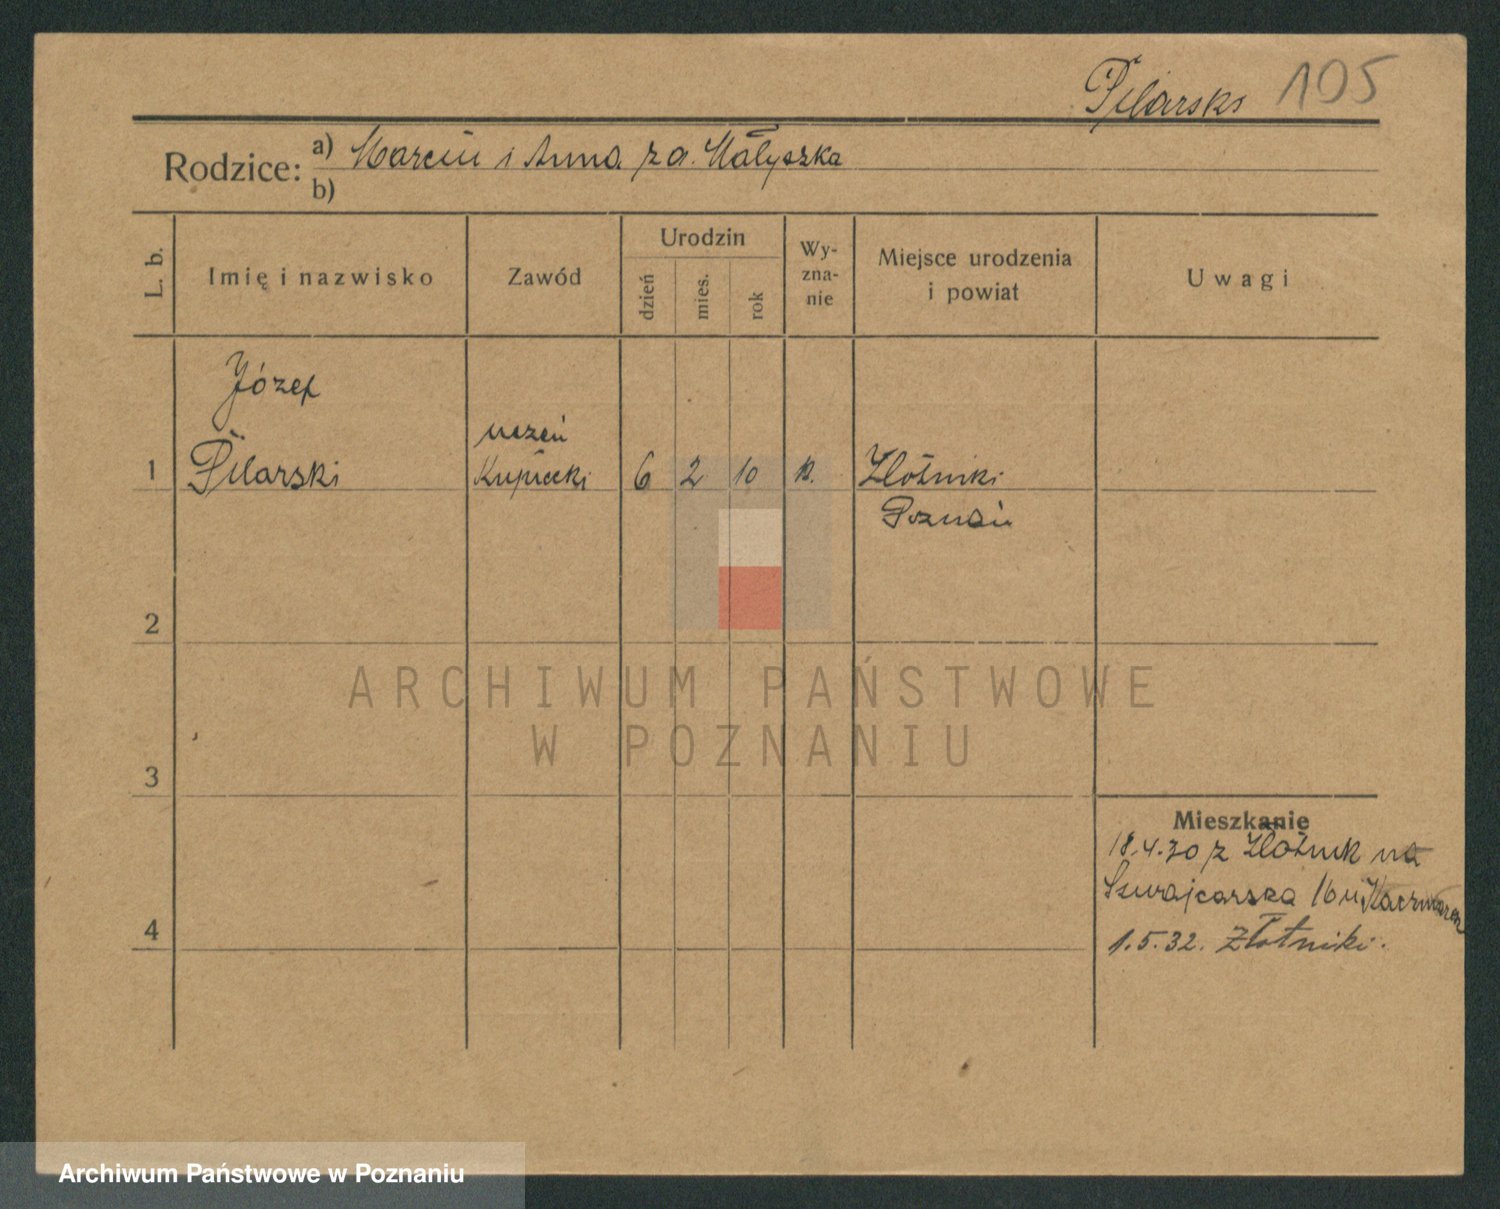 Pilarski 105
Rodzice: a) Marcin i Anna za. Małyszka
b)
L. b.
Imię i nazwisko
Zawód
Urodzin
dzień
mies.
rok
Wy-
zna-
nie
Miejsce urodzenia
i powiat
Uwagi
Józef
uczeń
1 Pilarski Kupiecki 6 2 10 k. Złotniki
Poznań
2
ARCHIWUM PAŃSTWOWE
W POZNANIU
3
Mieszkanie
18.4.30 z Złotnik na
Szwajcarska 16 u
4
1.5.32. Złotniki.
Archiwum Państwowe w Poznaniu